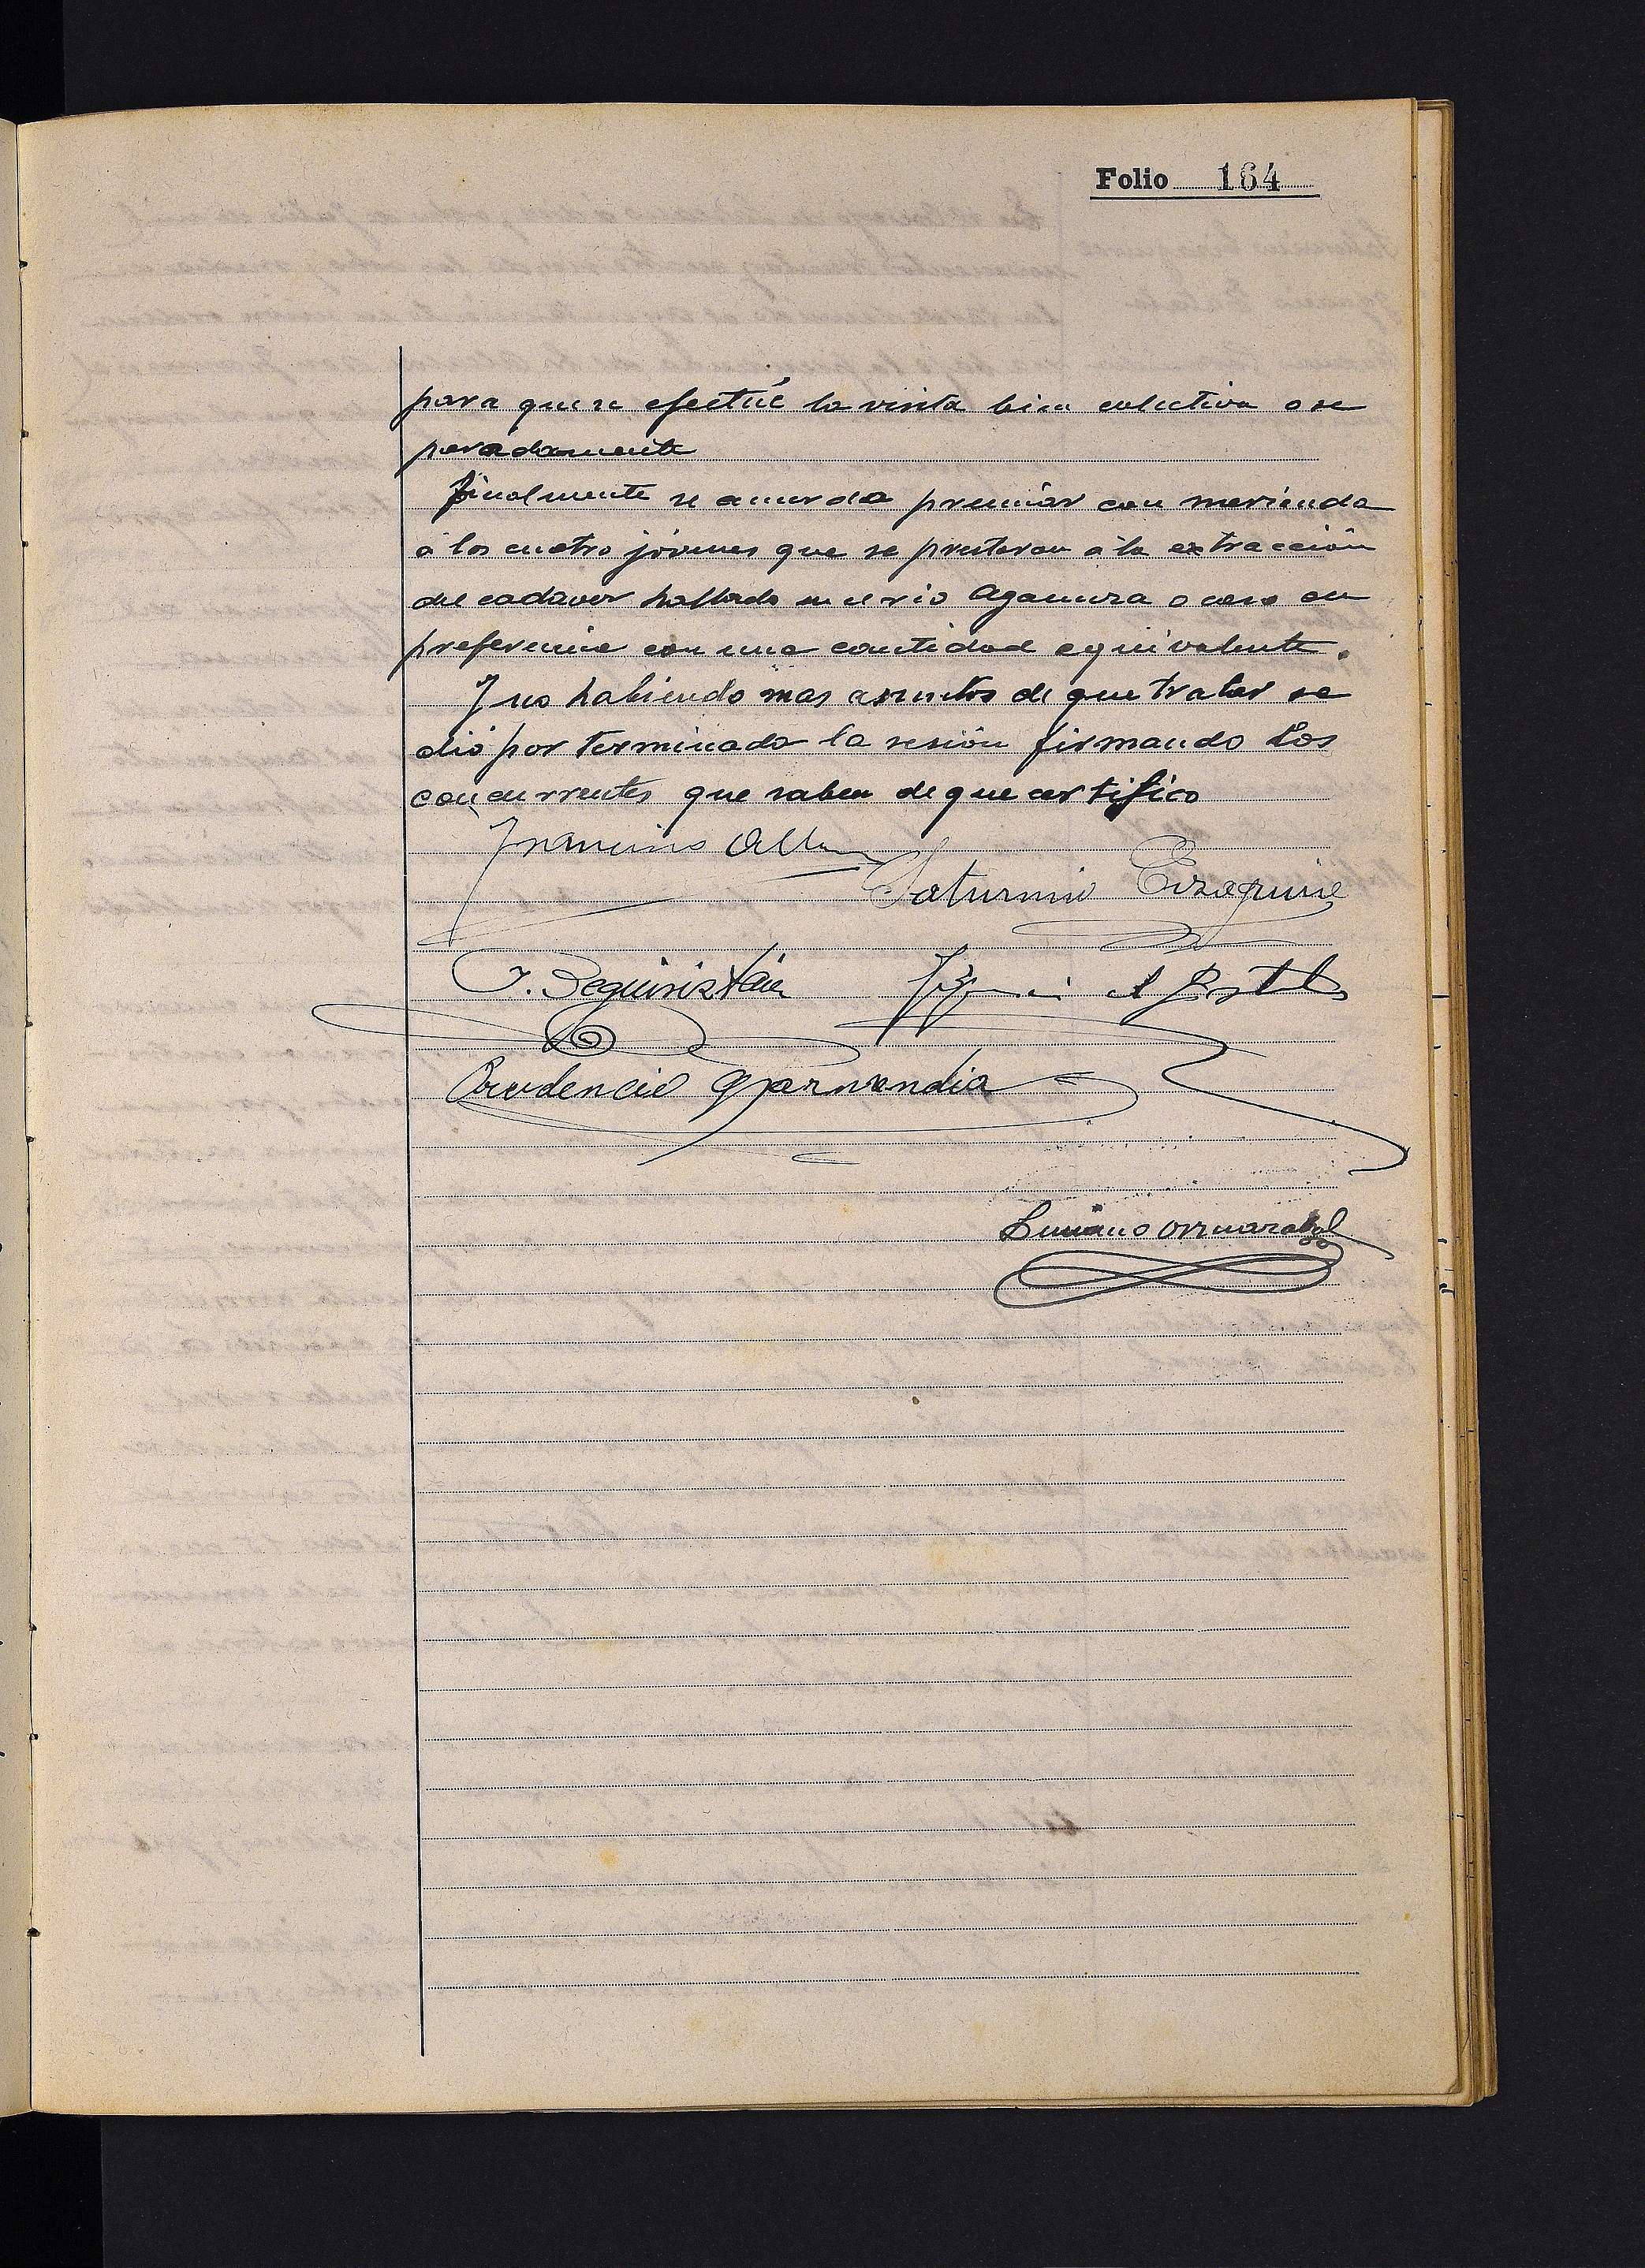 Folio 164
para que se efectúe la visita bien colectiva o se
paradamente
Finalmente se acuerda premiar con merienda
á los cuatro jóvenes que se prestaron á la extracción
del cadaver hallado en el rio Agaunza o caso en
preferencia con una cantidad equivalente.
Y no habiendo mas asuntos de que tratar se
dió por terminada la sesión firmando los
concurrentes que saben de que certifico
Francisco
Saturnino Eizaguirre
J. Beguiristain
Prudencio Garmendia
Luciano